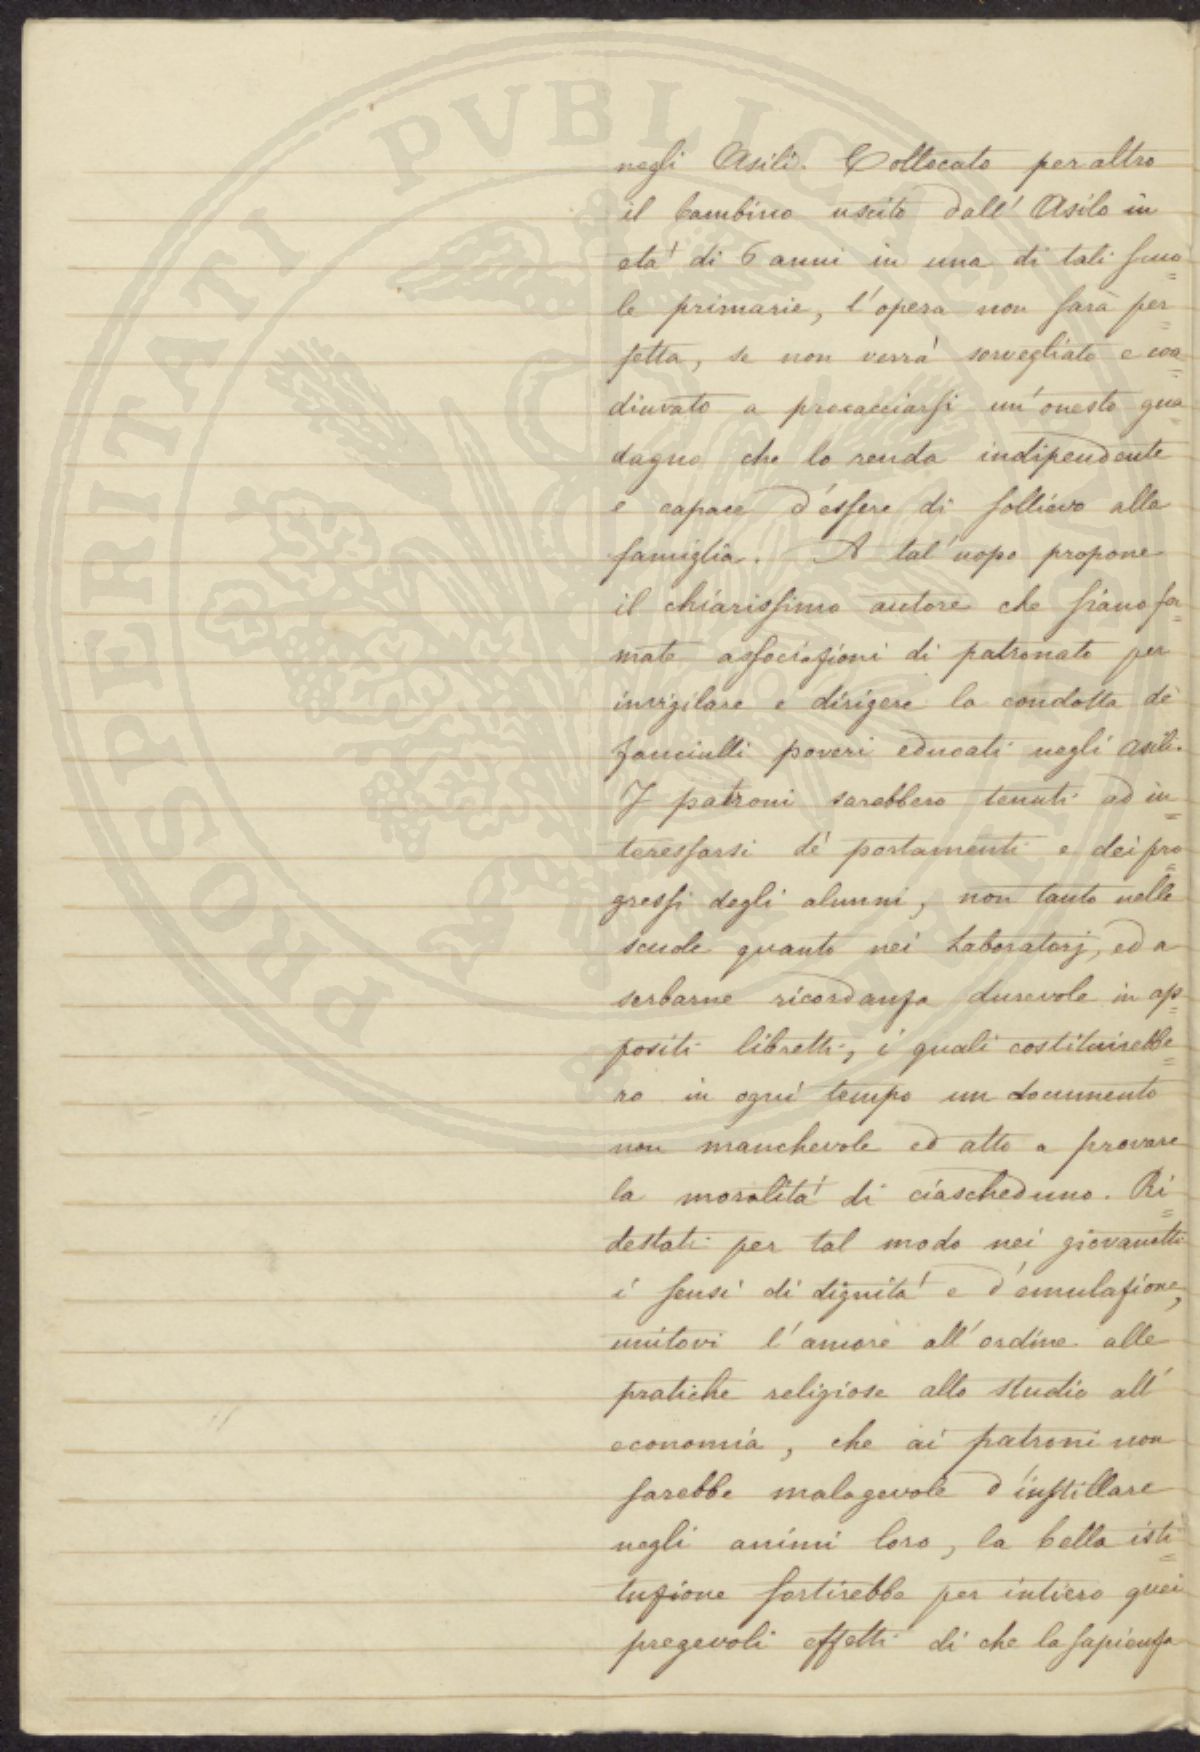 negli Asili. Collocato per altro
il bambino uscito dall' Asilo in
eta' di 6 anni in una di tali scuo=
le primarie, l'opera non sarà per=
fetta, se non verrà sorvegliato e coa=
diuvato a procacciarsi un'onesto gua=
dagno che lo renda indipendente
e capace d'essere di sollievo alla
famiglia. A tal'uopo propone
il chiarissimo autore che siano for=
mate associazioni di patronato per
invigilare e dirigere la condotta de'
fanciulli poveri educati negli asili.
I patroni sarebbero tenuti ad in=
teressarsi de' portamenti e dei pro=
gressi degli alunni, non tanto nelle
scuole quanto nei Laboratorj, ed a
serbarne ricordanza durevole in ap=
positi libretti, i quali costituirebbe=
ro in ogni tempo un documento
non manchevole ed atto a provare
la moralita' di ciascheduno. Ri=
destati per tal modo nei giovanetti
i sensi di dignita' e d'emulazione,
unitovi l'amore all'ordine alle
pratiche religiose allo studio all'
economia, che ai patroni non
sarebbe malagevole d'instillare
negli animi loro, la bella isti=
tuzione sortirebbe per intiero quei
pregevoli effetti di che la sapienza
PROSPERITATI PVBLICAE